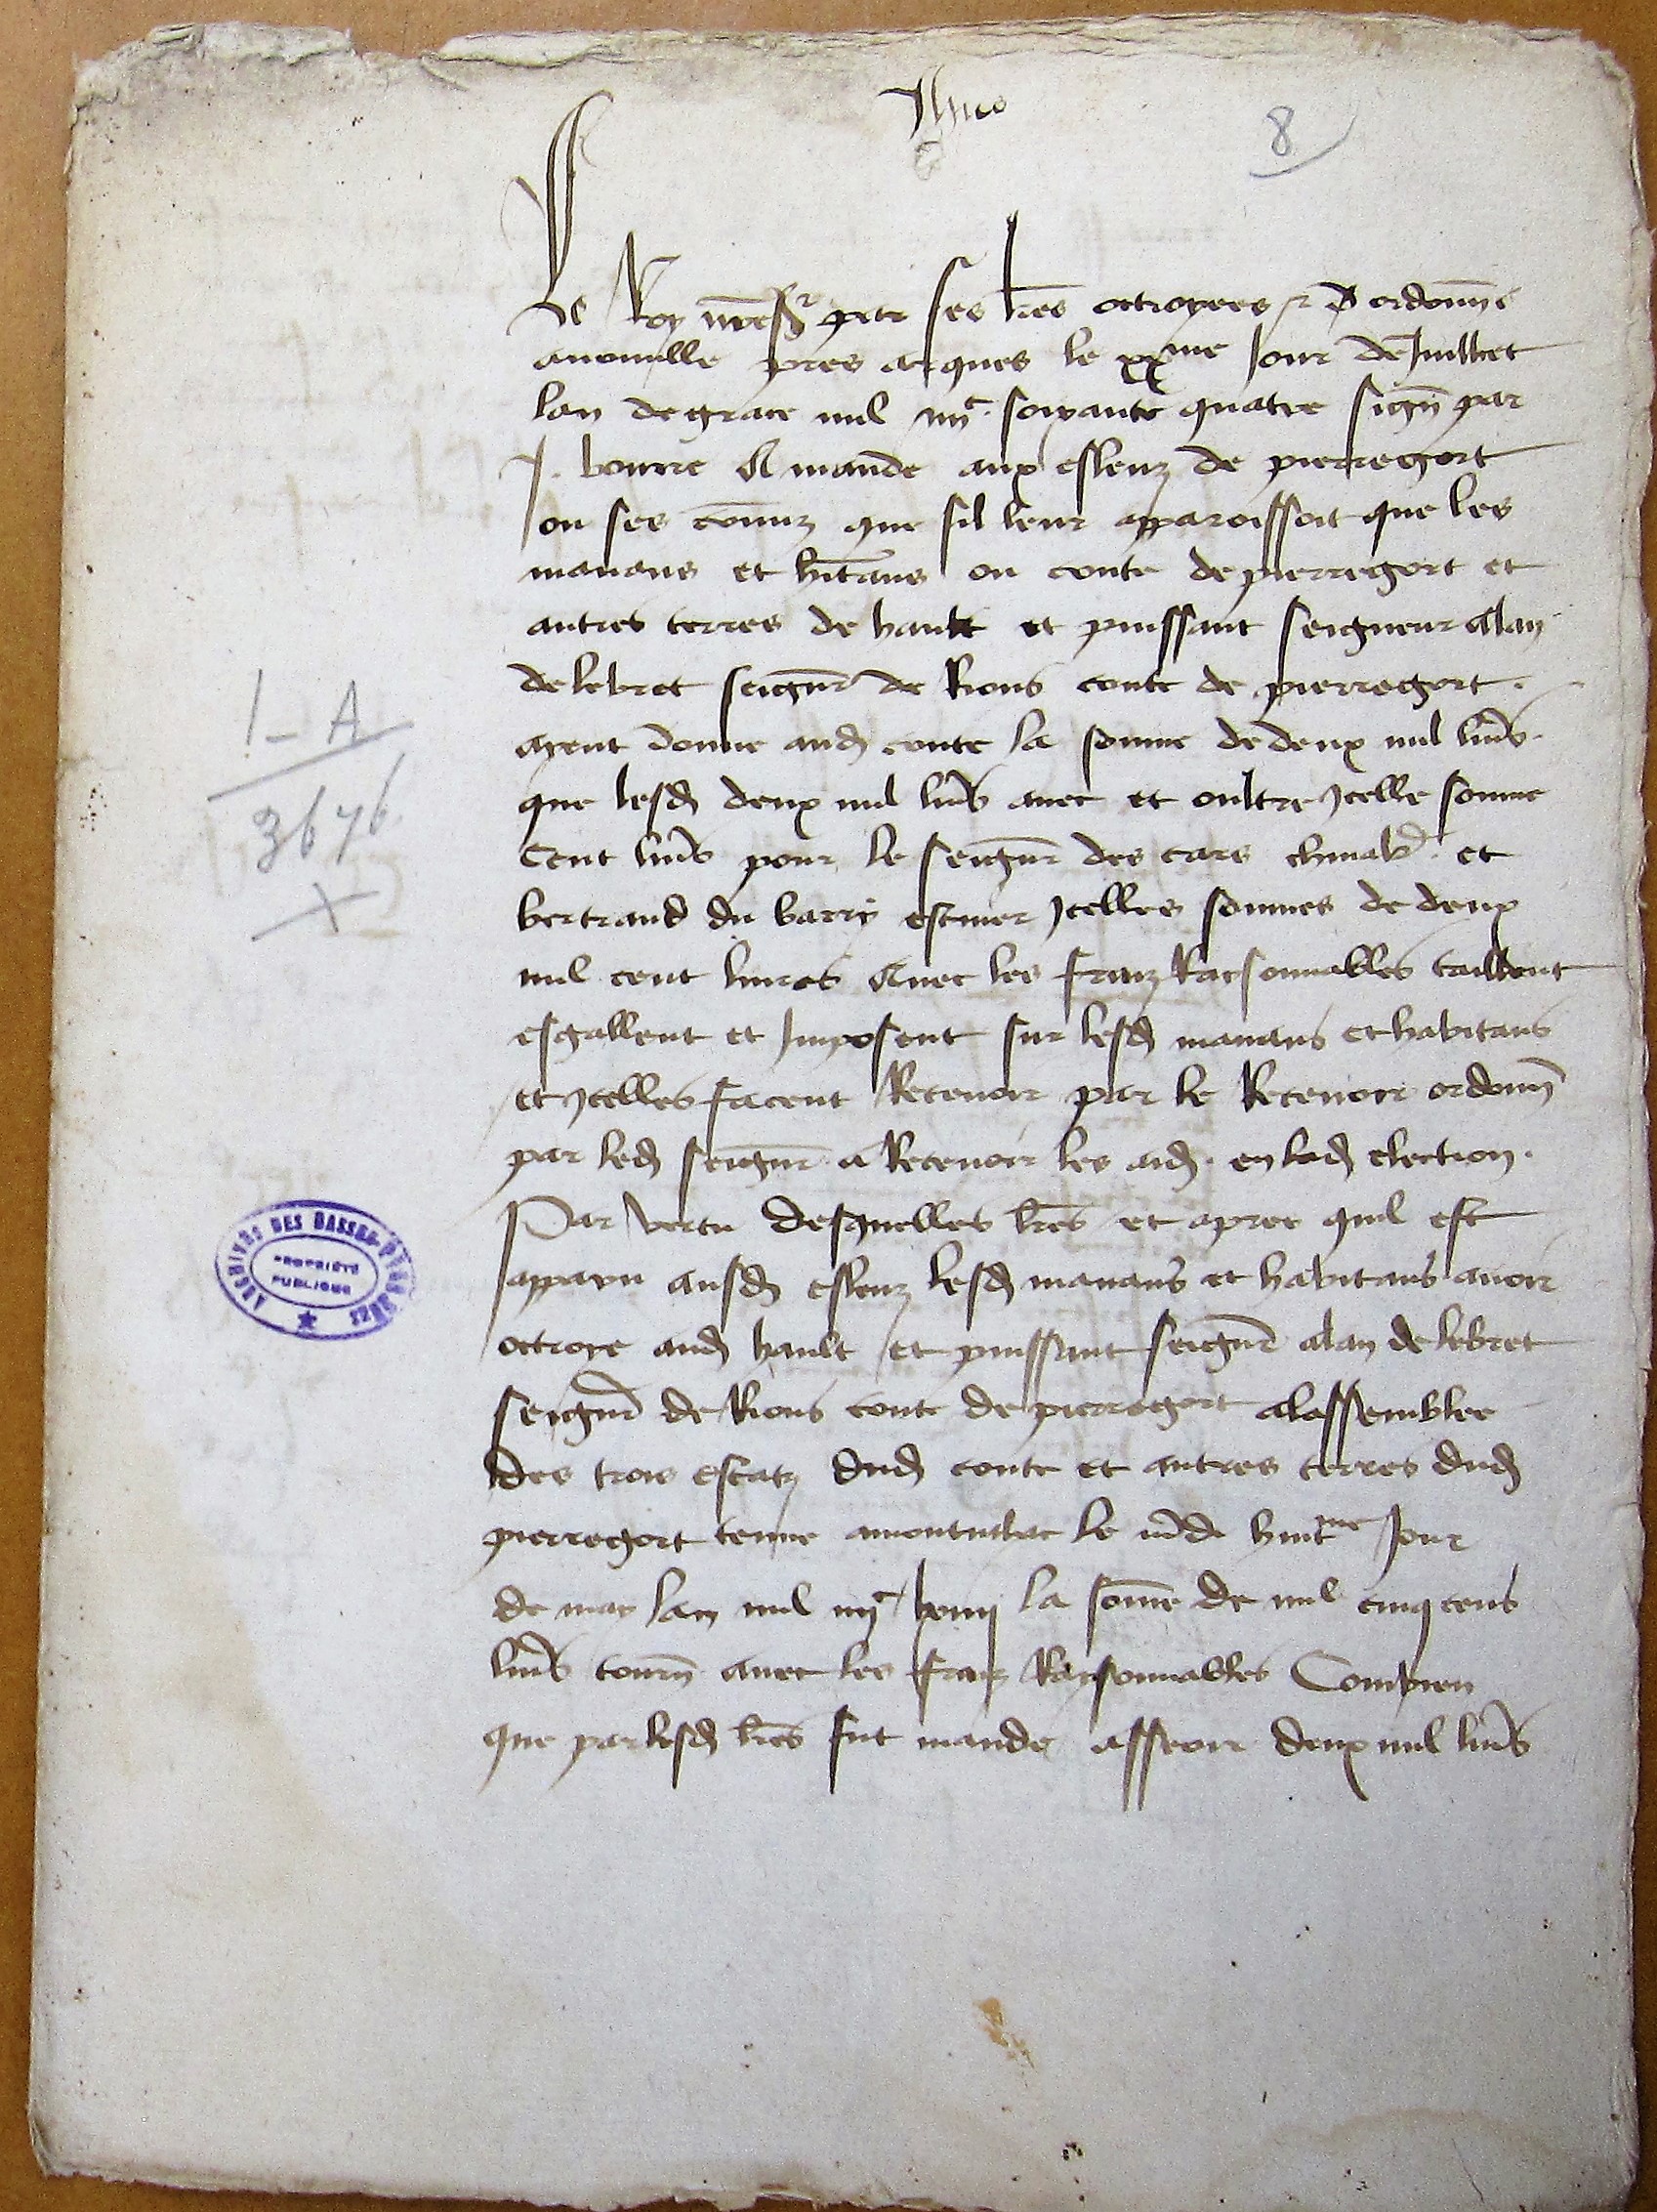 Jhus
8
Le Roy nr̃e sr par ses lr̃es octroyees et ordonn̄
a nouville pres arques le xxme Jour de Juillet
lan de grace mil iiijc soixante quatre sign̄ par
J. bourre A mande aux esleuz de pierregort
ou ses com̄uz que sil leur apparoissoit que les
manans et hit̄ans ou conte de pierregort et
autres terres de hault et puissant seigneur alan
delebret seign̄r de Rions conte de pierregort.
ayent donne aud conte la somme de deux mil liūs
que lesd deux mil liūs avec et oultre Jcelle somme
Cent liūs pour le seign̄r des cars et
bertrand du barry Jcelles sommes de deux
mil cent livres Avec les fraiz Raisonnables taillent
esgallent et Jmposent sur lesd manans et habitans
et Jcelles facent Recevoir par le Receveur ordonn̄
par led seign̄r a Recevoir les aid. en lad election.
Par vertu desquelles lr̃es et apres quil est
apparu ausd esleuz lesd manans et habitans avoir
octroye aud hault et puissant seign̄r alan delebret
seign̄r de Rions conte de pierregort a lassemblee
des trois estatz dud conte et autres terres dud
pierregort tenue a montinhac le huitme Jour
de may lan mil iiijc lxiiij la som̄e de mil cinq cens
liūs tourn̄ avec les fraiz Raysonnables Combien
que par lesd lr̃es fut mande asseoir deux mil liūs
1 - A
3676
X
ARCHIVES DES BASSES-PYRÉNÉES
PROPRIÉTÉ
PUBLIQUE